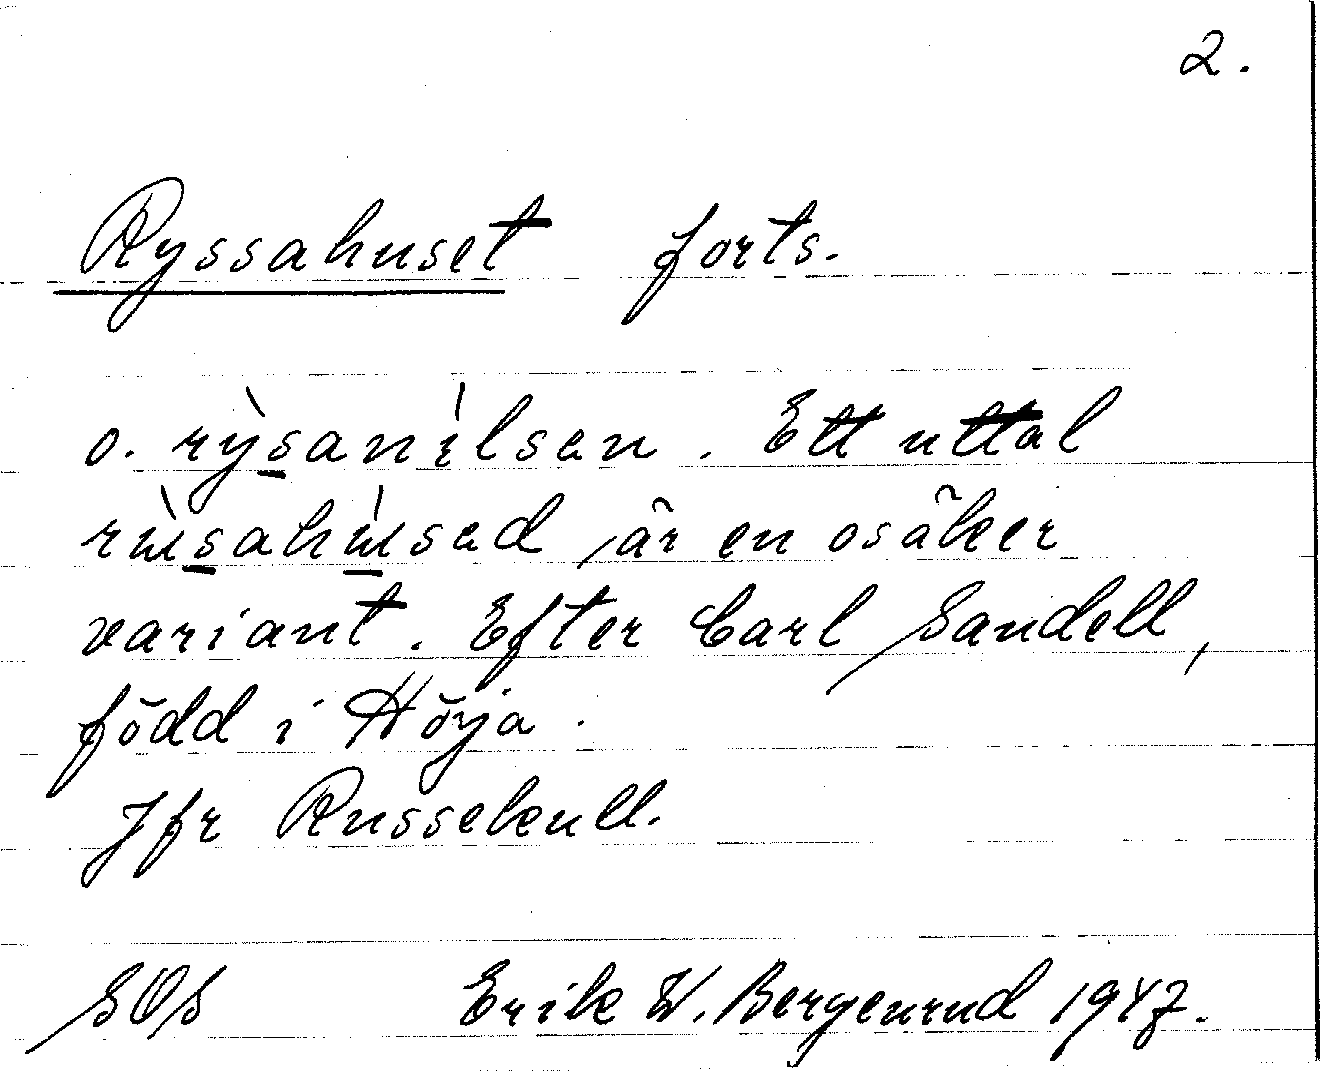 2.
Ryssahuset forts.
o. rỳsanìlsen. Ett uttal
rɯ̀sahɯ̀sed, är en osäker
variant. Efter Carl Sandell,
född i Hörja.
Jfr Russekull.
SOS Erik W. Bergenrud 1947.